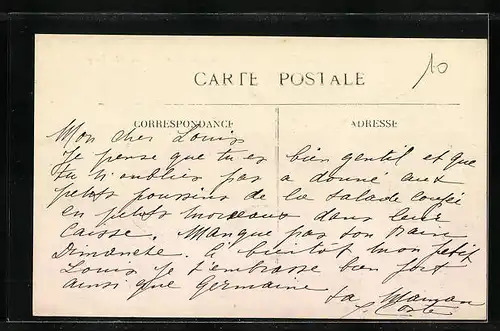 10
CARTE POSTALE
CORRESPONDANCE
ADRESSE
Mon cher Louis
Je pense que tu es bien gentil et que
tu n'oublies pas a donné aux
petits poussins de la salade coupé
en petits morceaux dans leur
caisse. Manque pas son
Dimanche. a bientôt mon petit
Louis je t'embrasse bien fort
ainsi que Germaine
ta Maman
Coste